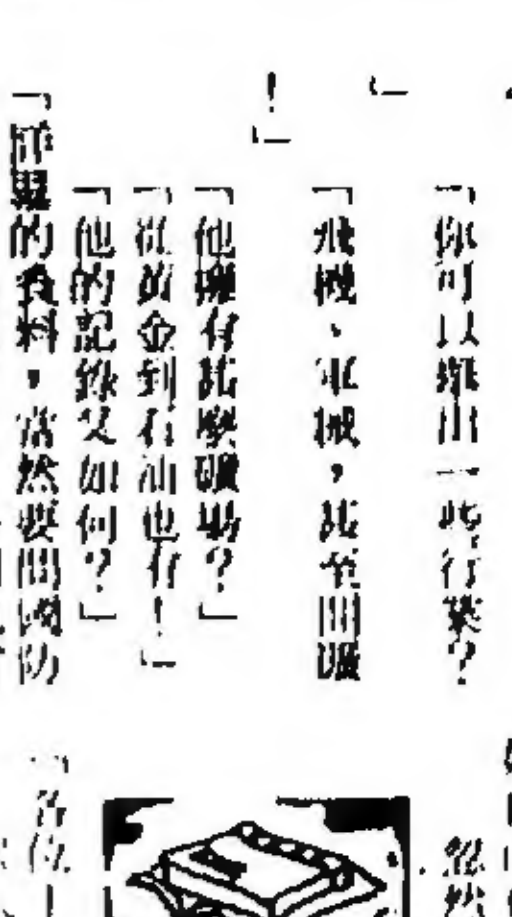 「你可以舉出一些行業?
」
「飛機、軍械,甚至開礦
!」
「他擁有甚麼礦場?」
「從黃金到石油也有!」
「他的記錄又如何?」
「詳盡的資料,當然要問國防
「各位